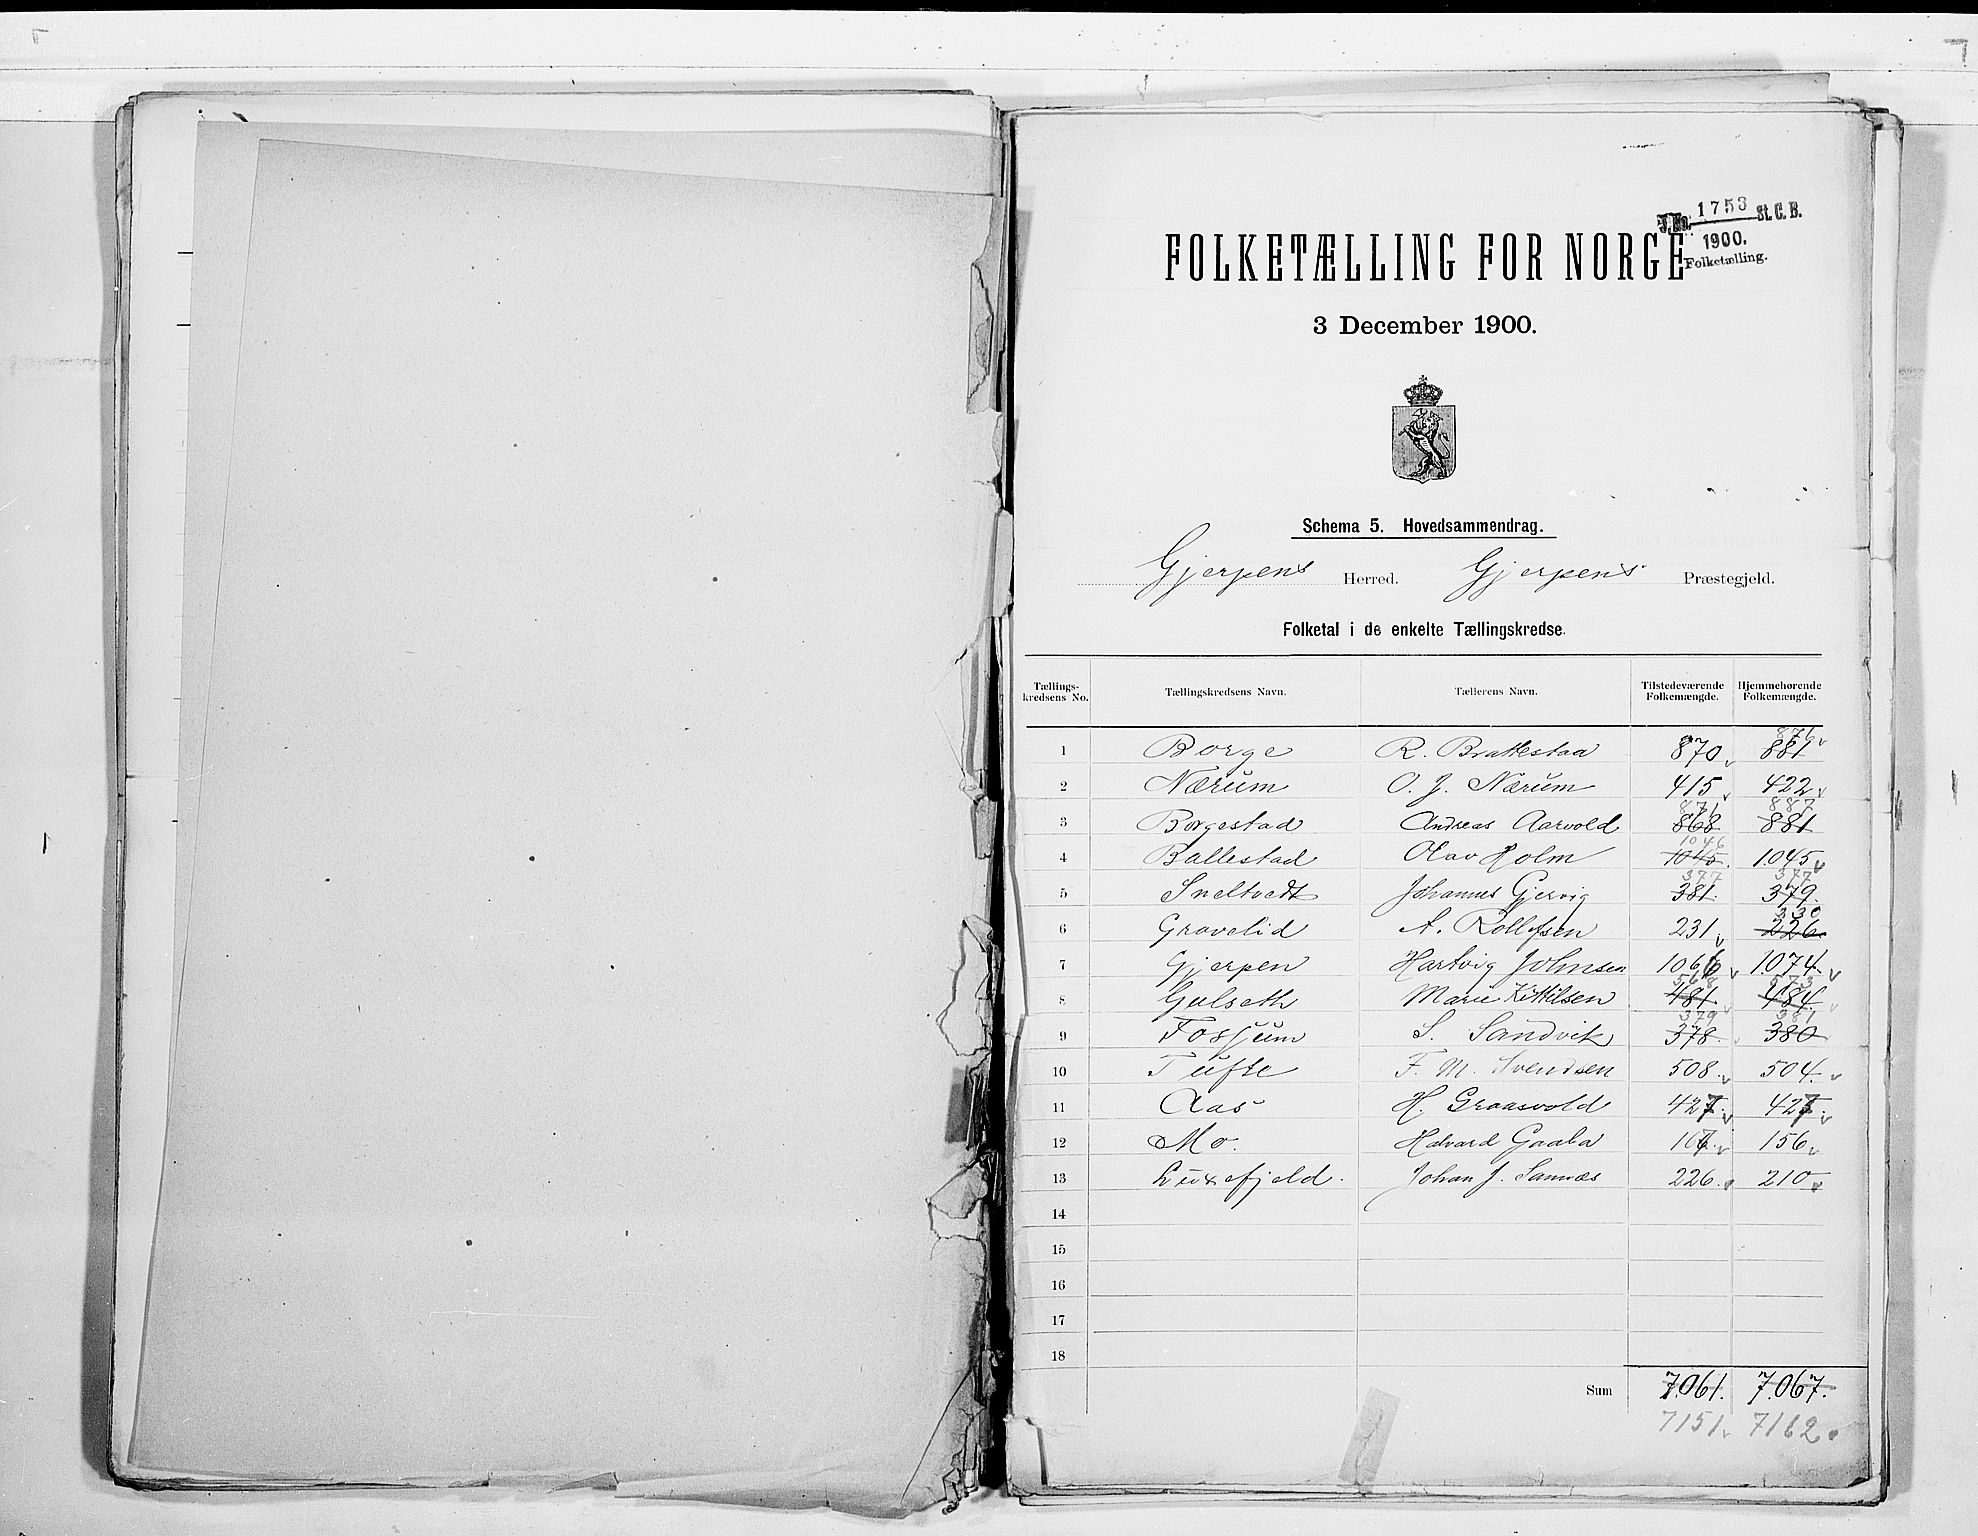 J.No. 1753 St.C.B.
1900.
Folketælling.
FOLKETÆLLING FOR NORGE
3 December 1900.
Schema 5. Hovedsammendrag.
Gjerpens Herred. Gjerpens Præstegjeld.
Folketal i de enkelte Tællingskredse.
Tællings-kredsens No. Tællingskredsens Navn. Tællerens Navn. Tilstedeværende Folkemængde. Hjemmehørende Folkemængde.
876
1 Borge R. Brattestaa 870 881
2 Nærum O. J. Nærum 415 422
871 887
3 Borgestad Andreas Aarvold 868 881
1046
4 Ballestad Olav Holm 1045. 1045
377 377
5 Sneltvedt Johannes Gjervig 381. 379.
330
6 Gravelid A. Rollefsen 231 226.
7 Gjerpen Hartvig Johnsen 1066 1074.
568 573
8 Gulseth Marie Kittilsen 481 484
379 381
9 Fossum S. Sandvik 378. 380
10 Tufte F. M. Svendsen 508. 504.
11 Aas H. Graasvold 427. 427.
12 Mo. Halvard Gaaba 156
13 Luxefjeld. Johan J. Sannæs 226. 210
14
15
16
17
18
Sum 7.061. 7.067.
7151 7162